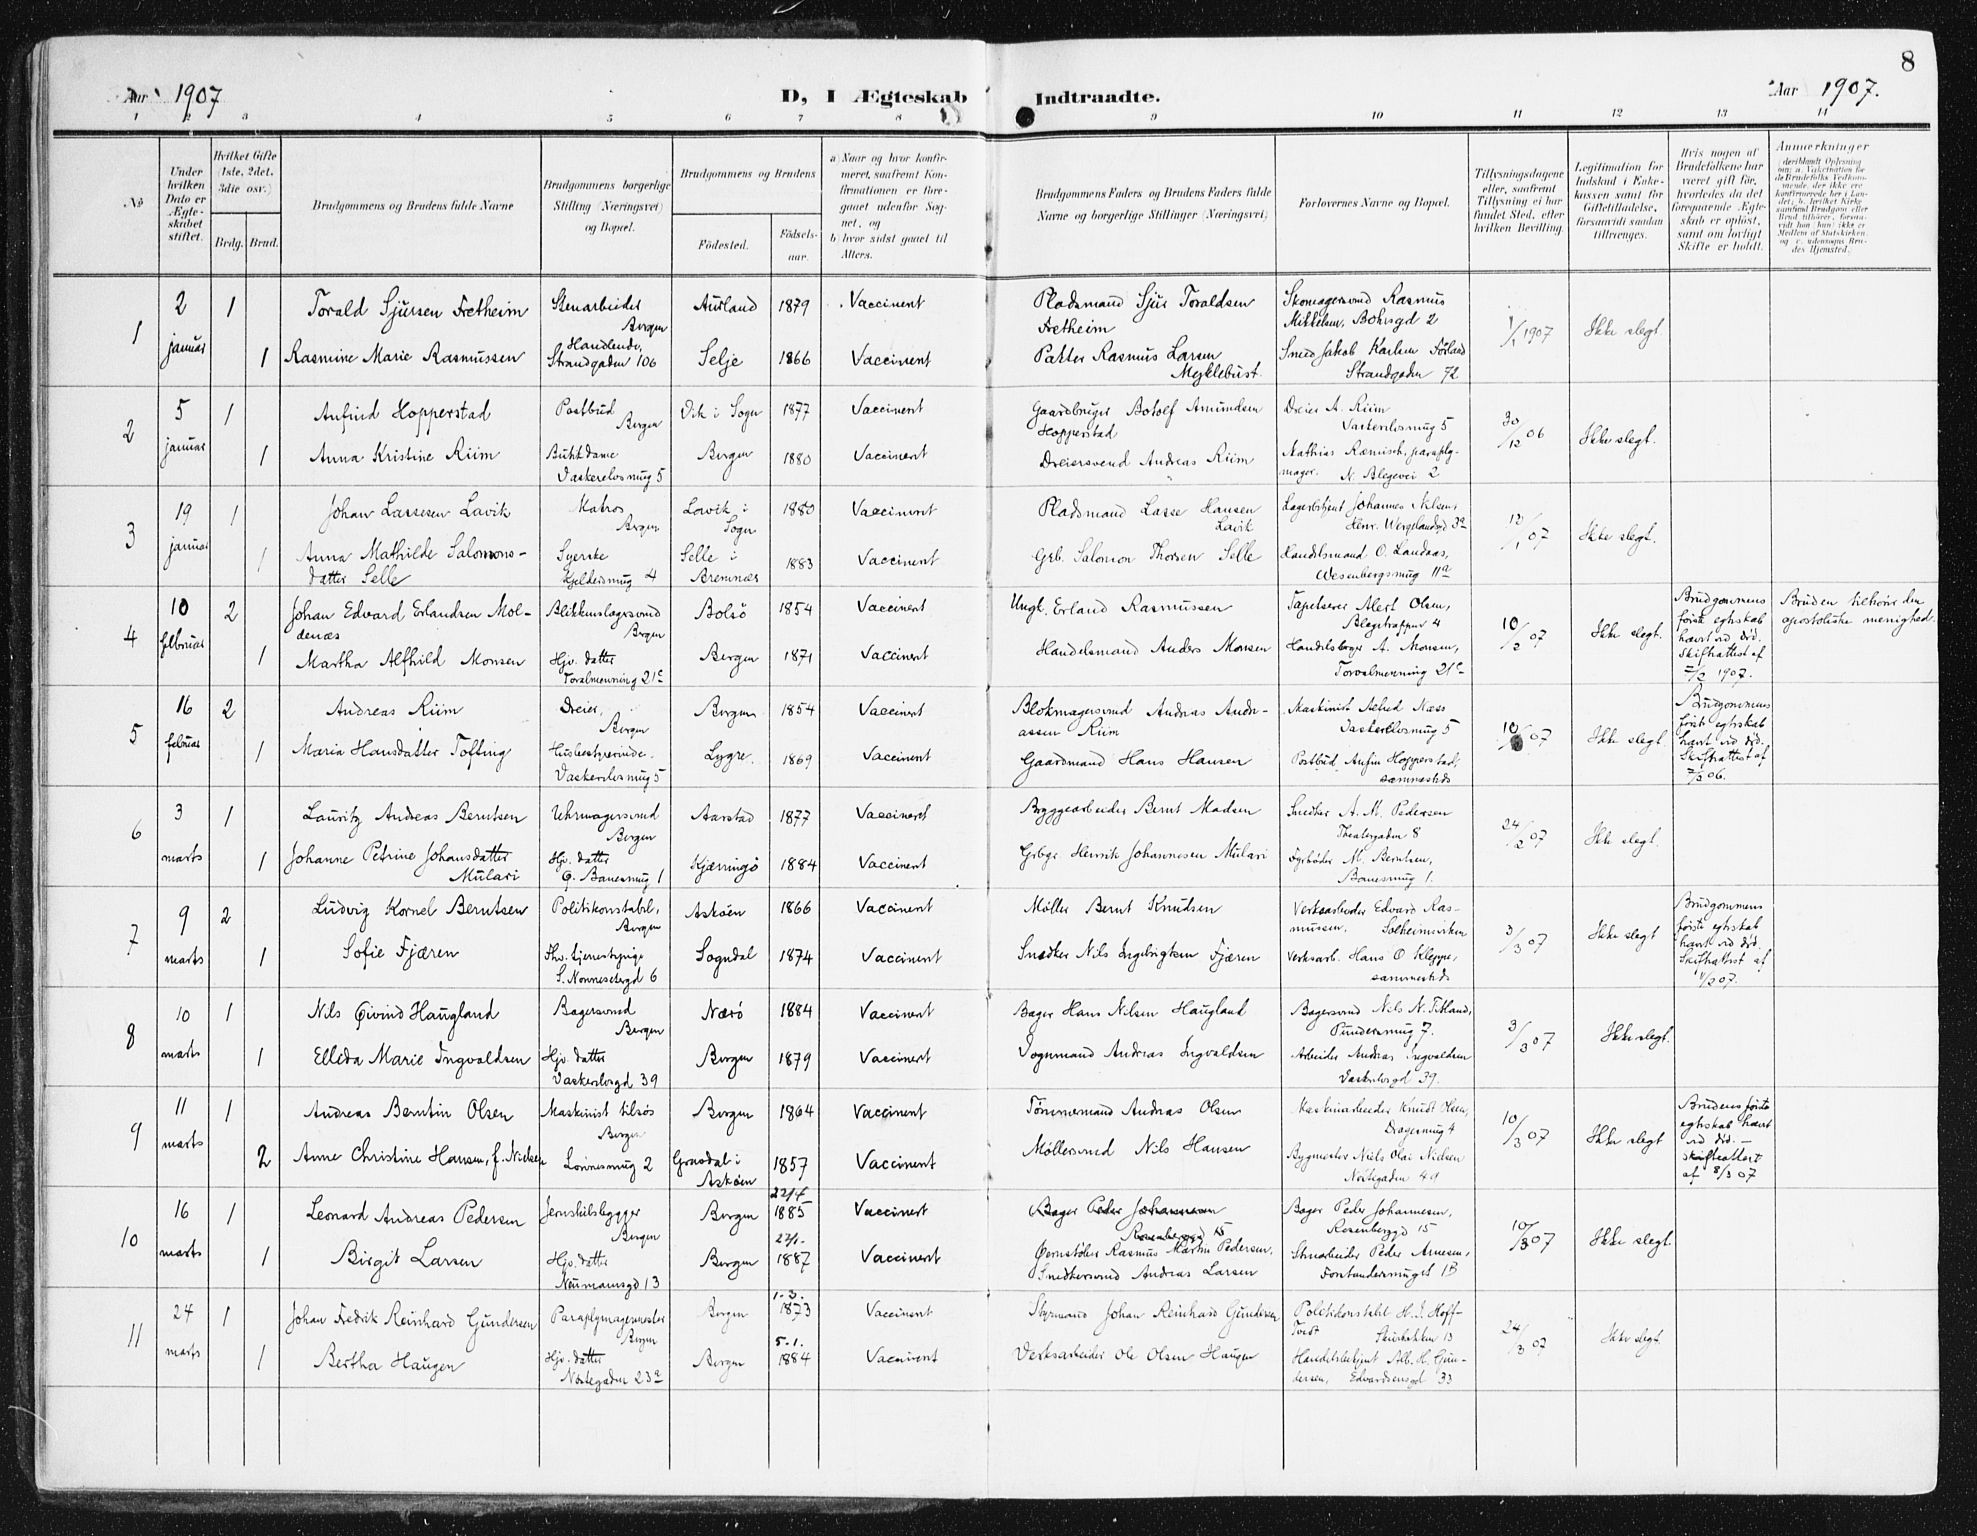 8
Aar 1907
D, I Ægteskab Indtraadte.
Aar 1907.
1 2 3 4 5 6 7 8 9 10 11 12 13 14
No
Under hvilken Dato er Ægteskabet stiftet.
Hvilket Gifte (1ste, 2det, 3die osv.)
Brdg. Brud.
Brudgommens og Brudens fulde Navne
Brudgommens borgerlige Stilling (Næringsvei) og Bopæl.
Brudgommens og Brudens
Fødested. Fødselsaar.
a) Naar og hvor konfirmeret, saafremt Konfirmationen er foregaaet udenfor Sognet, og
b) hvor sidst gaaet til Alters.
Brudgommens Faders og Brudens Faders fulde Navne og borgerlige Stillinger (Næringsvei)
Forlovernes Navne og Bopæl.
Tillysningsdagene eller, saafremt Tillysning ei har fundet Sted, efter hvilken Bevilling.
Legitimation for Indskud i Enkekassen samt for Giftetilladelse, forsaavidt saadan tiltrænges.
Hvis nogen af Brudefolkene har været gift før, hvorledes da det foregaaende Ægteskab er opløst, samt om lovligt Skifte er holdt.
Anmærkninger
1 2 januar 1 Torald Sjursen Fretheim Stenarbeider Bergen Aurland 1879 Vaccinert Pladsmand Sjur Toraldsen Fretheim Skomagersvend Rasmus Mikkelsen, Bohrsgd 2 1/1 1907 Ikke slegt.
1 Rasmine Marie Rasmussen Handlende, Strandgaden 106 Selje 1866 Vaccinert Rasmus Larsen Myklebust Smed Jakob Karlsen Strandgaden 72
2 5 januar 1 Anfind Hopperstad Postbud Bergen Vik i Sogn 1877 Vaccinert Gaardbruger Botolf Amundsen Hopperstad Dreier A. Riim Vaskerelvsmug 5 30/12 06 Ikke slegt.
1 Anna Kristine Riim Vaskerelvsmug 5 Bergen 1880 Vaccinert Dreiersvend Andreas Riim Mathias Rømisch, paraplymager. N. Blegevei 2
3 19 januar 1 Johan Lassesen Lavik Matros Bergen Lavik i Sogn 1880 Vaccinert Pladsmand Lasse Hansen Lavik Lagerbetjent Johannes Nilsen, Henr. Wergelandsgd 3a 13/1 07 Ikke slegt.
1 Anna Mathilde Salomonsdatter Selle Syerske Kjeldersmug 4 Selle i Bremnæs 1883 Vaccinert Grb. Salomon Thorsen Selle Handelsmand O. Landaas, Wesenbergsmug 11a
4 10 februar 2 Johan Edvard Erlandsen Moldenæs Blikkenslagersvend Bergen Bolsø 1854 Vaccinert Ungk. Erland Rasmussen Tapetserer Alert Olsen, Blegetrappen 4 10/2 07 Ikke slegt. Brudgommens første egteskab hævt ved død. Skifteattest af 7/2 1907. Bruden tilhører den apostoliske menighed.
1 Martha Alfhild Monsen Hjv. datter Torvalmenning 21c Bergen 1871 Vaccinert Handelsmand Anders Monsen Handelsborger A. Monsen, Torvalmenning 21c
5 16 februar 2 Andreas Riim Dreier, Bergen Bergen 1854 Vaccinert Blokmagersvend Andreas Andreassen Riim Maskinist Alfred Næss Vaskerelvsmug 5 10/ 07 Ikke slegt. Brudgommens første egteskab hævt ved død. Skifteattest af 06.
1 Maria Hansdatter Tofting Husbestyrerinde. Vaskerelvsmug 5 Lygre. 1869 Vaccinert Gaardmand Hans Hansen Postbud Anfin Hopperstad, sammesteds
6 3 marts 1 Lauritz Andreas Berntsen Uhrmagersvend Bergen Aarstad 1877 Vaccineret Bryggearbeider Bernt Madsen Snedker A. M. Pedersen Theatergaden 8 24/2 07 Ikke slegt.
1 Johanne Petrine Johansdatter Mulari Hjv. datter Banersmug 1 Kjærringø 1884 Vaccinert Grbgr Henrik Johannesen Mulari Fyrbøder M. Berntsen, Banersmug 1.
7 9 marts 2 Ludvig Kornel Berntsen Politikonstabel, Bergen Askøen 1866 Vaccinert Møller Bernt Knudsen Verksarbeider Edvard Rasmussen, Solheimsviken 3/3 07 Ikke slegt Brudgommens første egteskab hævt ved død. Skifteattest af 07.
1 Sofie Fjæren S. Nonnesetergd 6 Sogndal 1874 Vaccinert Snedker Nils Ingebrigtsen Fjæren Verksarb. Hans O Kleppe, sammesteds
8 10 marts 1 Nils Øivind Haugland Bagersvend Bergen Nærø 1884 Vaccinert Bager Hans Nilsen Haugland Bagersvend Nils N. Titland, Pundersmug 7. 3/3 07 Ikke slegt.
1 Elleda Marie Ingvaldsen Hjv. datter Vaskerelvsgd 39 Bergen 1879 Vaccinert Vognmand Andreas Ingvaldsen Arbeider Andreas Ingvaldsen Vaskerelvsgd 39.
9 11 marts 1 Andreas Berntin Olsen Maskinist tilsøs Bergen Bergen 1864 Vaccinert Tømmermand Andreas Olsen Maskinarbeider Knudt Olsen, Dragersmug 4 10/3 07 Ikke slegt Brudens første egteskab hævt ved død. – skifteattest af 8/3 07
2 Anne Christine Hansen, f. Nielsen Lønnesmug 2 Gransdal i Askøen 1857 Vaccinert Møllersvend Nils Hansen Bygmester Niels Olai Nielsen Nøstegaden 49
10 16 marts 1 Leonard Andreas Pedersen Bergen Bergen 22/4 1885 Vaccinert Bager Peder Johannesen Rosenberggd 15 Bager Peder Johannesen, Rosenberggd 15 10/3 07 Ikke slegt.
1 Birgit Larsen Hjv. datter Neumannsgd 13 Bergen 27/1. 1887 Vaccinert Rasmus Martin Pedersen, Snedkersvend Andreas Larsen Stenarbeider Peder Arnesen, Forstandersmuget 1B
11 24 marts 1 Johan Fredrik Reinhard Gundersen Paraplymagermester Bergen Bergen 1.3. 1873 Vaccinert Styrmand Johan Reinhard Gundersen Politikonstabel H. J. Hoff- Tvedt Skivebakken 13 24/3 07 Ikke slegt.
1 Bertha Haugen Hjv. datter Nøstegaden 23a Bergen 5.1. 1884 Vaccinert Verksarbeider Ole Olsen Haugen Handelsbetjent Alb. H. Gundersen, Edvardsensgd 33